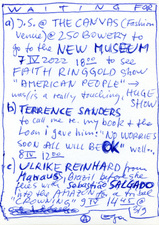 WAITING FOR
a) J.S. @ THE CANVAS (Fashion
Venue) @ 250 BOWERY to
go to the NEW MUSEUM
7 IV 2022 1800 to see
FAITH RINGGOLD show
"AMERICAN PEOPLE" →
was/is a really touching, HUGE SHOW
b) TERRENCE SANDERS
to call me re. my book + the
Loan I gave him! "NO WORRIES
SOON ALL WILL BE OK" well..
8 IV
c) ULRIKE REINHARD from
MANAUS, Brazil before she
flies with Sebastião SALGADO
into the AMAZON for a tribe
"CROWNING" 9 IV 1445 @